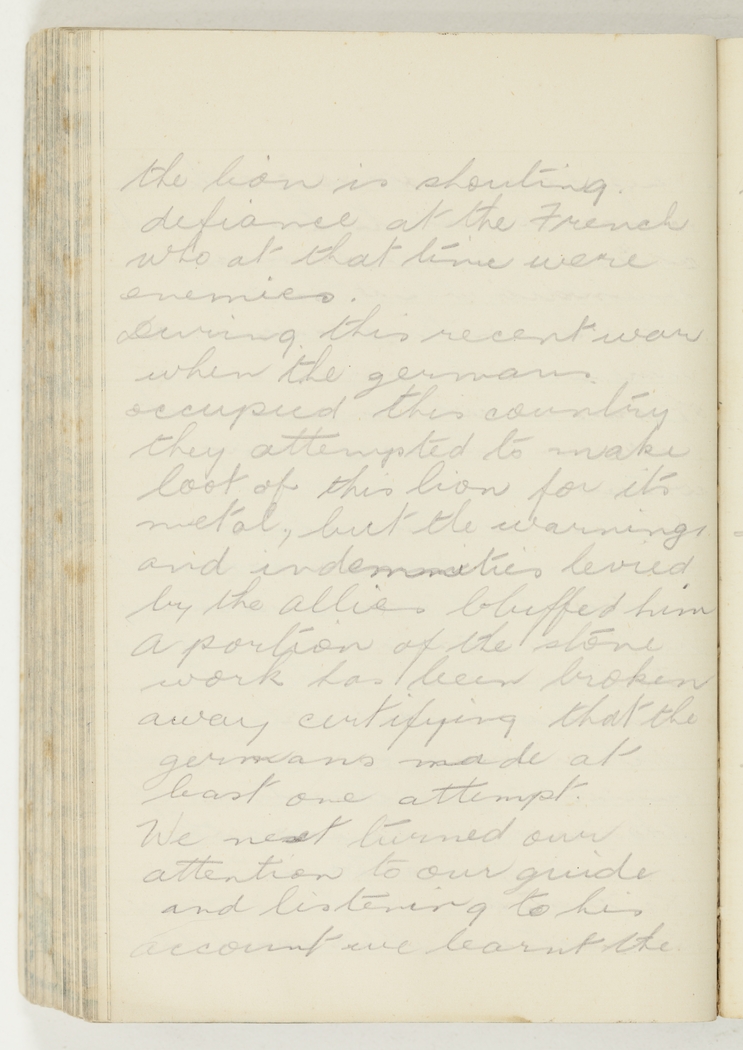 the lion is shouting.
defiance at the French
who at that time were
enemies.
During this recent war
when the germans
occupied this country
they attempted to make
loot of this lion for its
metal, but the warnings
and indemnities levied
by the allies bluffed him
A portion of the stone
work has been broken
away certifying that the
germans made at
least one attempt.
We next turned our
attention to our guide
and listening to his
account we learnt the